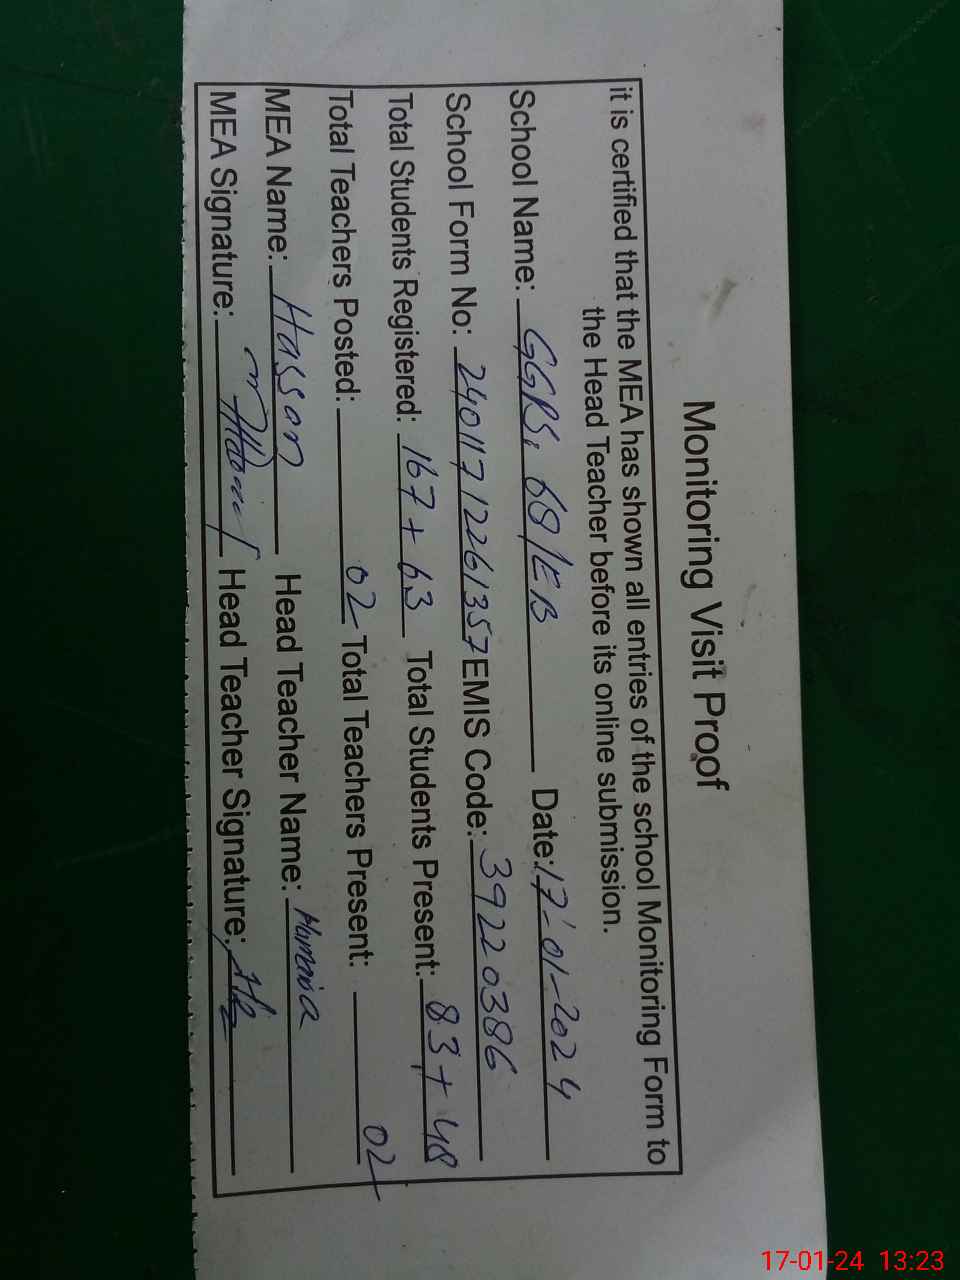 Monitoring Visit Proof
it is certified that the MEA has shown all entries of the school Monitoring Form to
the Head Teacher before its online submission.
School Name: GGPS, 68/EB Date: 17-01-2024
School Form No: 24011712261357 EMIS Code: 39220386
Total Students Registered: 167 + 63 Total Students Present: 83 + 48
Total Teachers Posted: 02 Total Teachers Present: 02
MEA Name: Hassan Head Teacher Name: Humaira
MEA Signature: Head Teacher Signature:
17-01-24 13:23